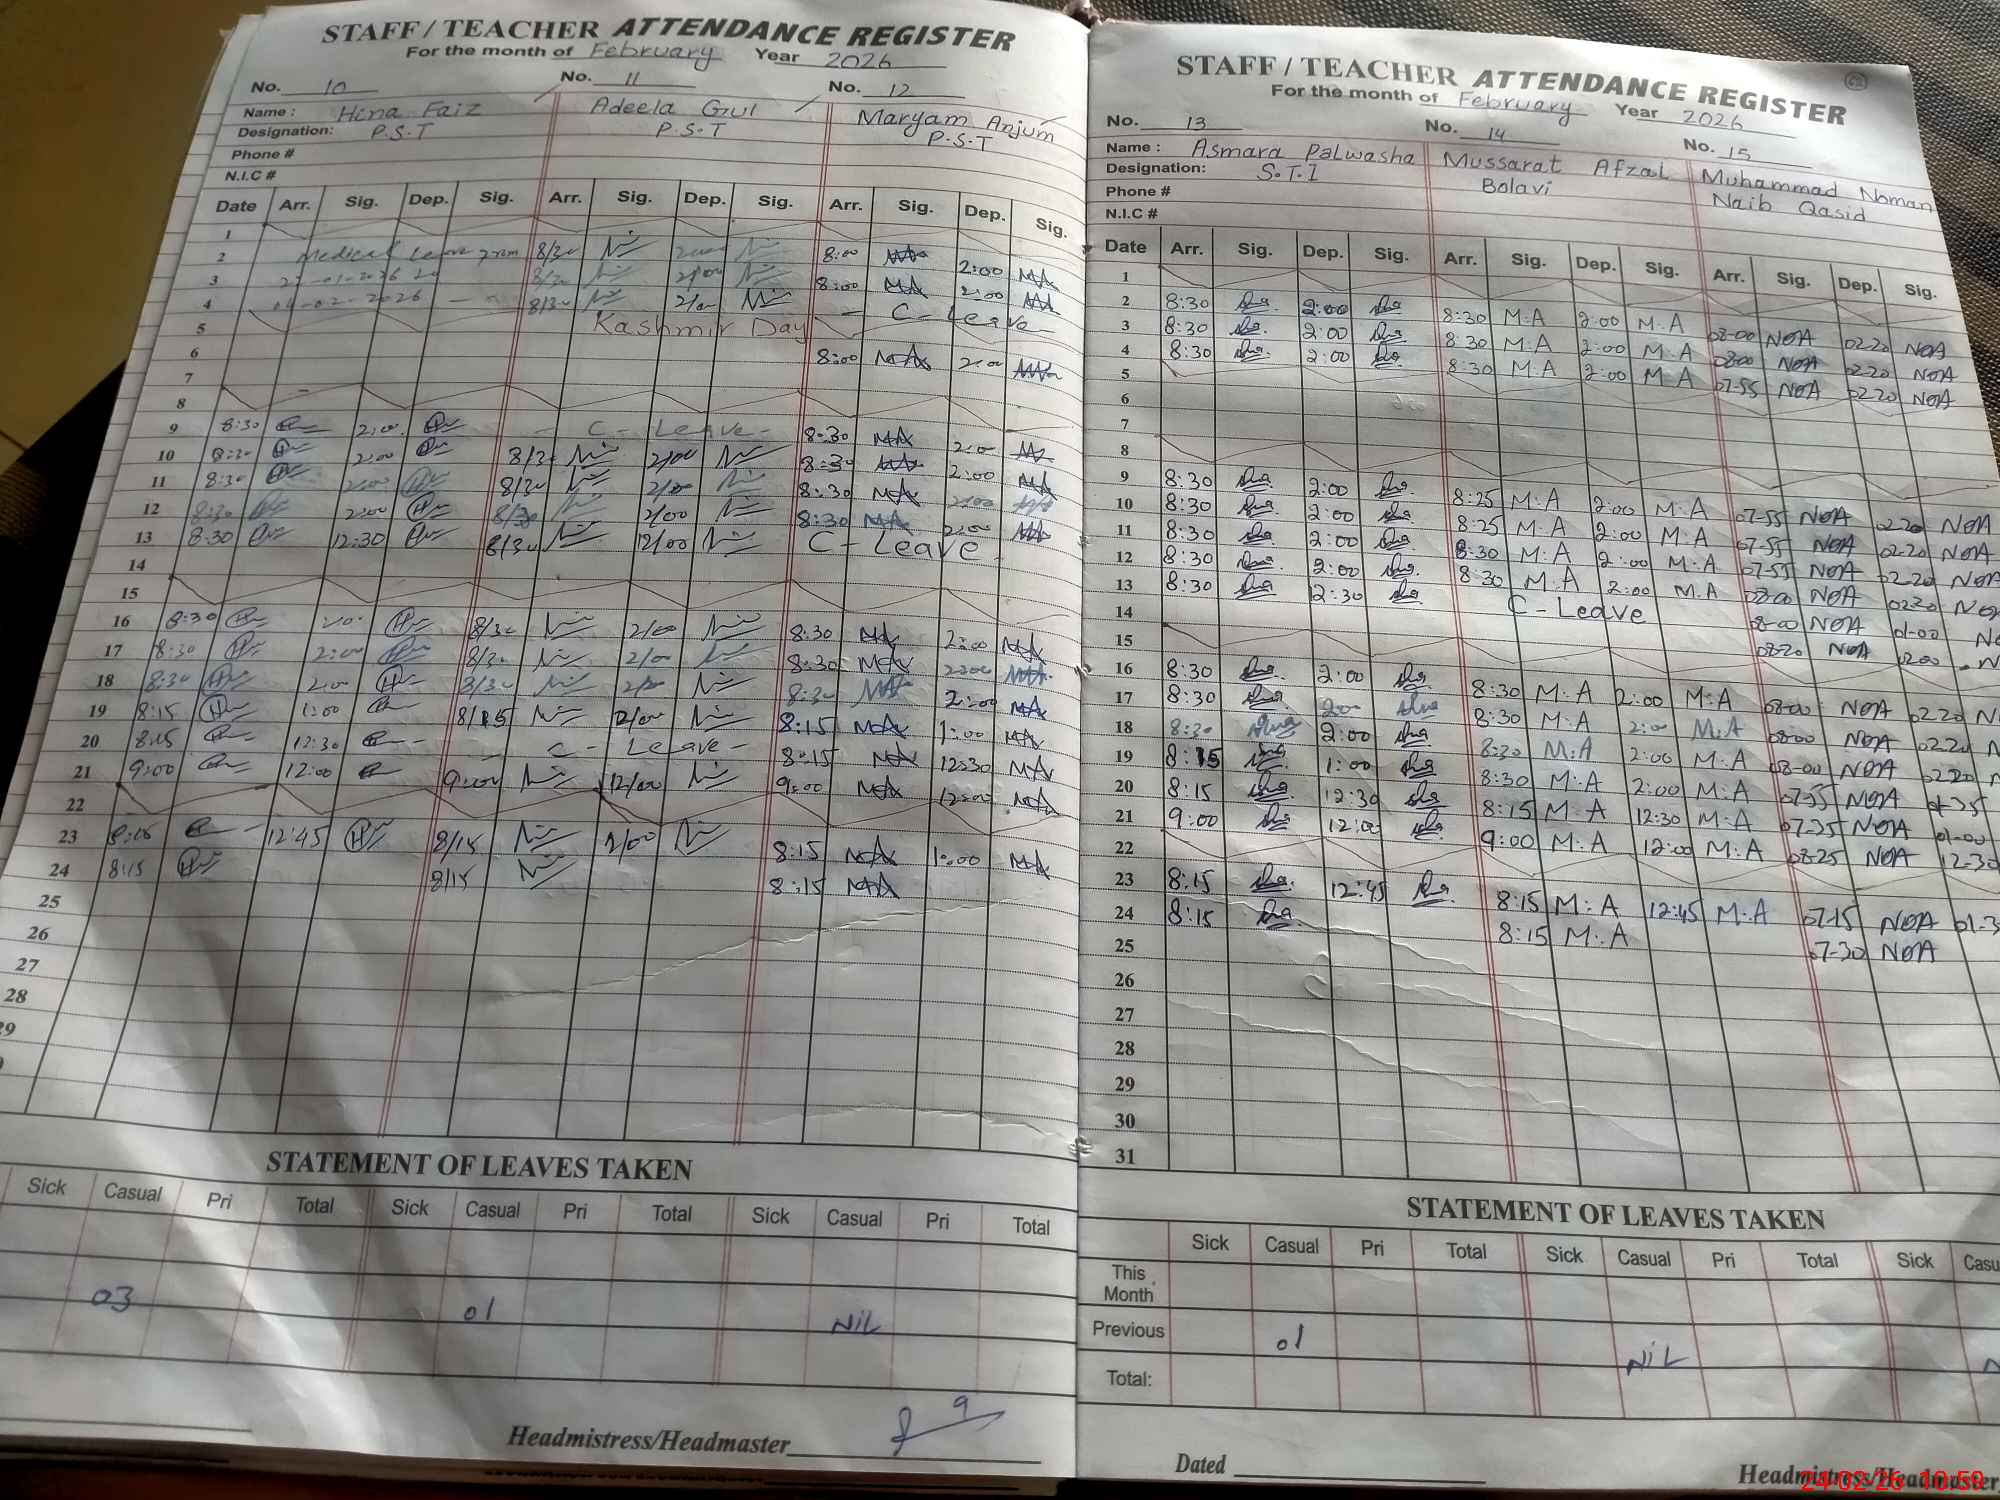 STAFF / TEACHER ATTENDANCE REGISTER
For the month of February Year 2026
No. 10 No. 11 No. 12
Name : Hina Faiz Adeela Gul Maryam Anjum
Designation: P.S.T P.S.T P.S.T
Phone #
N.I.C #
Date Arr. Sig. Dep. Sig. Arr. Sig. Dep. Sig. Arr. Sig. Dep. Sig.
1
2 Medical Leave from 8/30 2/00 8:00 2:00 MA
3 8/30 2/00 8:00 MA 2:00 MA
4 04-02-2026 8/30 2/00 C-Leave
5 Kashmir Day
6 8:00 MA 2:00
7
8
9 8:30 2:00 C-Leave- 8:30 MA 2:00 MA
10 8:30 2:00 8/30 2/00 8:30 MA 2:00 MA
11 8:30 2:00 8/30 2/00 8:30 MA 2:00
12 8:30 2:00 8/30 2/00 8:30 MA 2:00 MA
13 8:30 12:30 8/30 12/00 C-Leave
14
15
16 8:30 2:00 8/30 2/00 8:30 MA 2:00 MA
17 8:30 2:00 8/30 2/00 8:30 MA 2:00 MA
18 8:30 2:00 8/30 2/00 8:30 MA 2:00 MA
19 8:15 1:00 8/15 8:15 MA 1:00 MA
20 8:15 12:30 - C- Leave- 8:15 MA 12:30 MA
21 9:00 12:00 9:00 12/00 9:00 MA 12:00 MA
22
23 8:15 12:45 8/15 8:15 MA 1:00 MA
24 8:15 8/15 8:15 MA
25
26
27
28
29
STATEMENT OF LEAVES TAKEN
Sick Casual Pri Total Sick Casual Pri Total Sick Casual Pri Total
03 01 NiL
Headmistress/Headmaster
STAFF / TEACHER ATTENDANCE REGISTER
For the month of February Year 2026
No. 13 No. 14 No. 15
Name : Asmara Palwasha Mussarat Afzal Muhammad Noman
Designation: S.T.I Bolavi Naib Qasid
Phone #
N.I.C #
Date Arr. Sig. Dep. Sig. Arr. Sig. Dep. Sig. Arr. Sig. Dep. Sig.
1
2 8:30 2:00 8:30 M.A 2:00 M.A 08-00 NOA 02-20 NOA
3 8:30 2:00 8:30 M.A 2:00 M.A 08-00 NOA 02-20 NOA
4 8:30 2:00 8:30 M.A 2:00 M.A 07-55 NOA 02-20 NOA
5
6
7
8
9 8:30 2:00 8:25 M.A 2:00 M.A 07-55 NOA 02-20 NOA
10 8:30 2:00 8:25 M.A 2:00 M.A 07-55 NOA 02-20 NOA
11 8:30 2:00 8:30 M.A 2:00 M.A 07-55 NOA 02-20 NOA
12 8:30 2:00 8:30 M.A 2:00 M.A 08-00 NOA 02-20 NOA
13 8:30 2:30 C-Leave 08-00 NOA 01-00
14 08-20 NOA
15
16 8:30 2:00 8:30 M.A 2:00 M.A 08-00 NOA 02-20
17 8:30 2:00 8:30 M.A 2:00 M.A 08-00 NOA 02-20
18 8:30 2:00 8:30 M.A 2:00 M.A 08-00 NOA 02-20
19 8:15 1:00 8:30 M.A 2:00 M.A 07-55 NOA 01-35
20 8:15 12:30 8:15 M.A 12:30 M.A 07-25 NOA 01-00
21 9:00 12:00 9:00 M.A 12:00 M.A 08-25 NOA 12-30
22
23 8:15 12:45 8:15 M.A 12:45 M.A 07-15 NOA 01-3
24 8:15 8:15 M.A 07-30 NOA
25
26
27
28
29
30
31
STATEMENT OF LEAVES TAKEN
Sick Casual Pri Total Sick Casual Pri Total Sick Casu
This Month
Previous 01 NiL
Total:
Dated
Headmistress/Headmaster
24-02-26 10:59